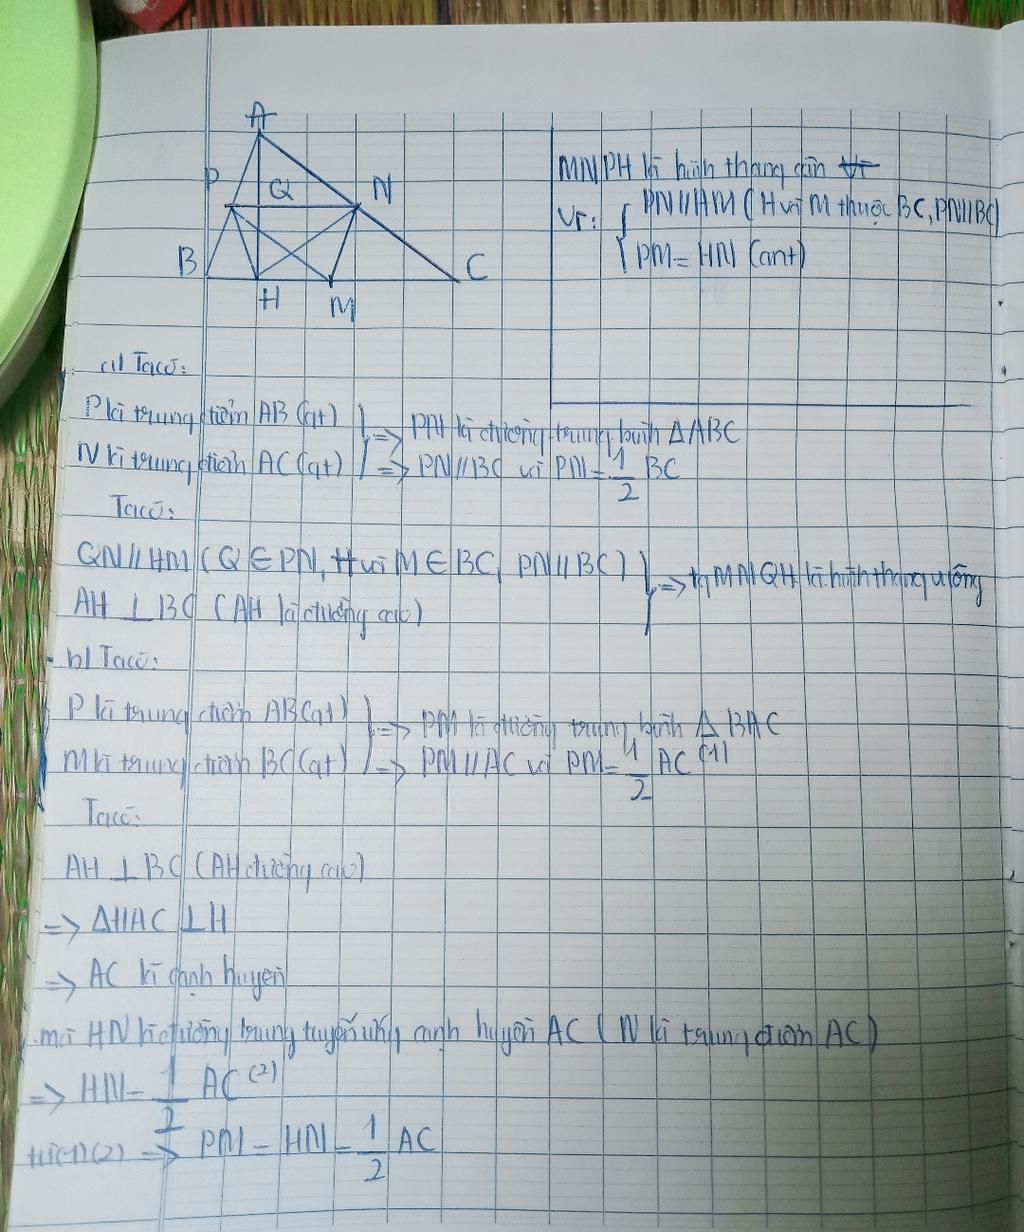 A
P
Q
N
B
C
H
M
MNPH là hình thang cân vì
Vì: { PN//HM (H và M thuộc BC, PN//BC)
PM = HN (cmt)
a) Ta có:
P là trung điểm AB (gt)
N là trung điểm AC (gt) } => PN là đường trung bình ΔABC
=> PN//BC và PN = 1/2 BC
Ta có:
QN//HM (Q ∈ PN, H và M ∈ BC, PN//BC)
AH ⊥ BC (AH là đường cao) } => tg MNQH là hình thang vuông
b) Ta có:
P là trung điểm AB (gt)
M là trung điểm BC (gt) } => PM là đường trung bình Δ BAC
=> PM//AC và PM = 1/2 AC (1)
Ta có:
AH ⊥ BC (AH đường cao)
=> ΔHAC ⊥ H
=> AC là cạnh huyền
mà HN là đường trung tuyến ứng cạnh huyền AC (N là trung điểm AC)
=> HN = 1/2 AC (2)
từ (1)(2) => PM = HN = 1/2 AC